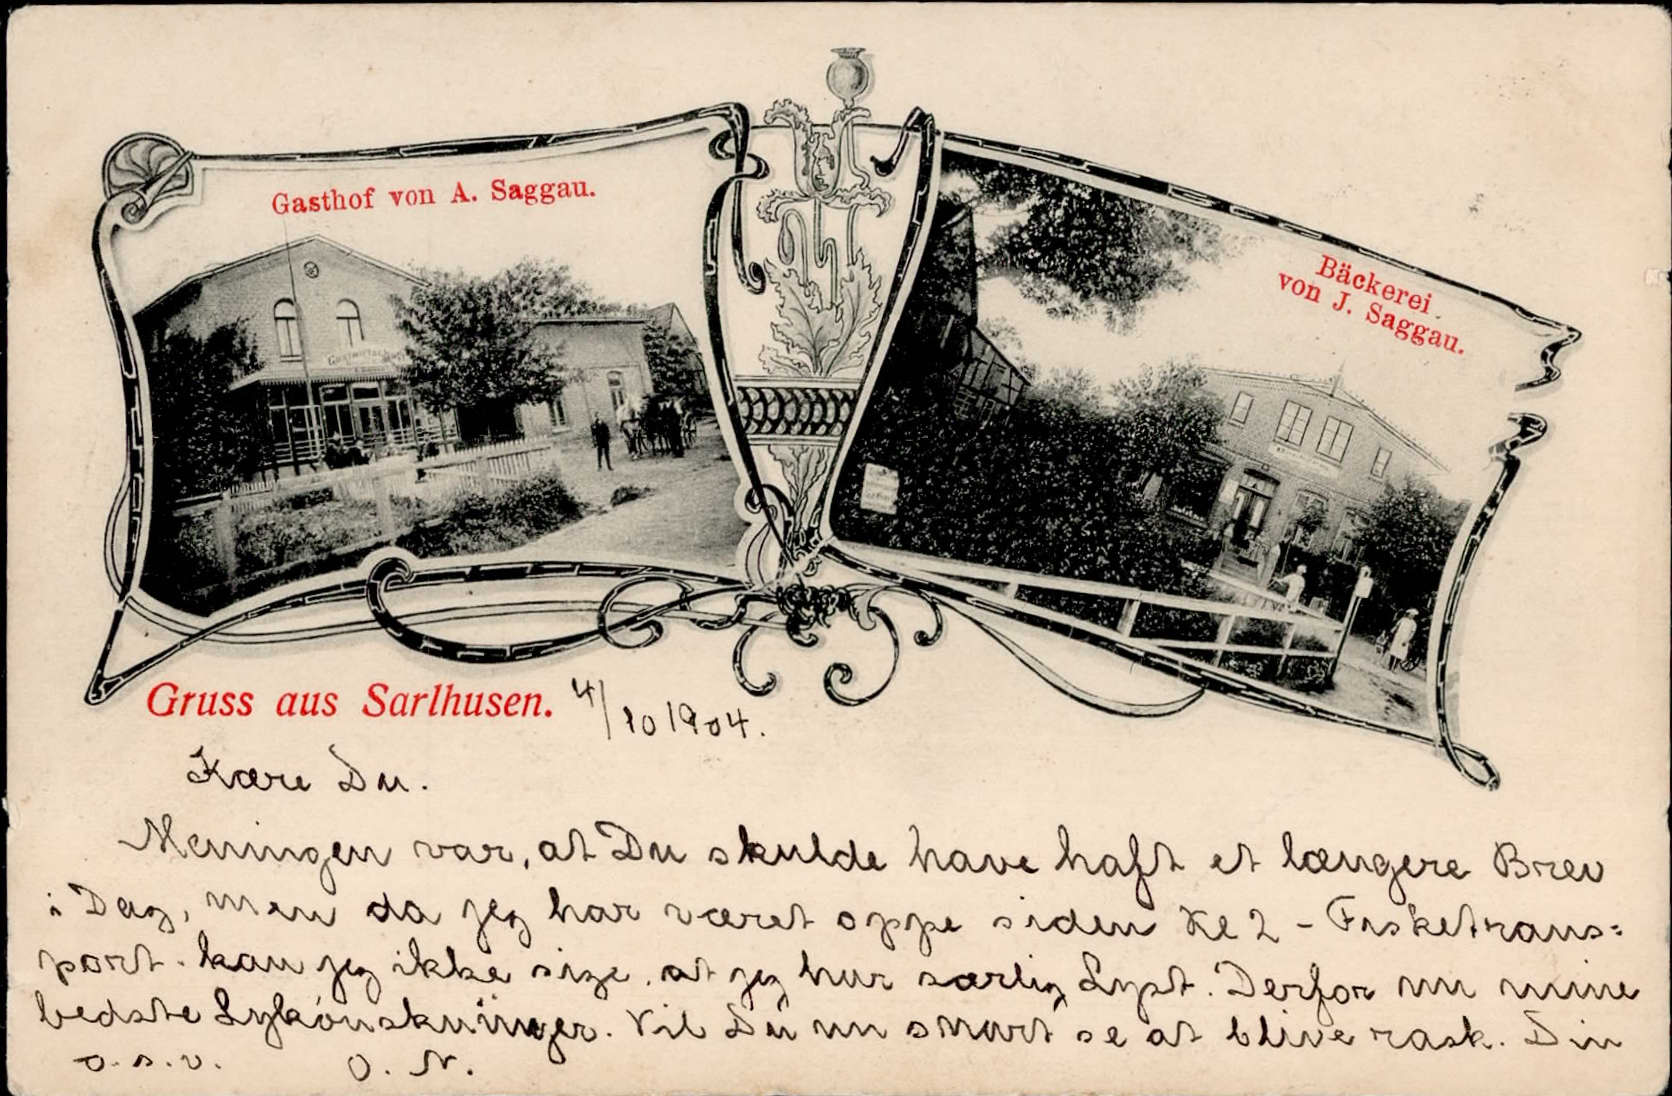 Gasthof von A. Saggau.
Bäckerei
von J. Saggau.
Gruss aus Sarlhusen.
4/10 1904.
Kære Du.
Meningen var, at Du skulde have haft et længere Brev
i Dag, men da jeg har været oppe siden Kl 2 - Fisketrans-
port - kan jeg ikke sige, at jeg har særlig Lyst. Derfor nu mine
bedste Lykønskninger. Vil Du nu snart se at blive rask. Din
o.s.v. O. N.